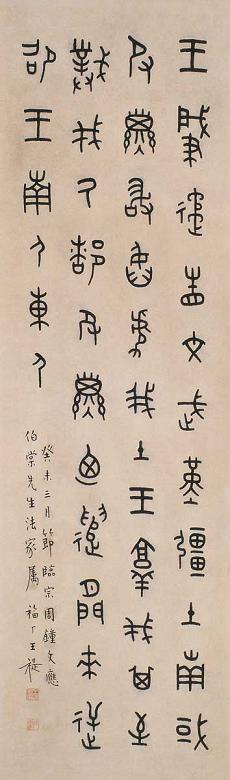 王肇遹省文武堇疆土南或
𠬝孳敢臽虐我土王𦎫伐其至
𢿢伐氒都𠬝孳廼遣閒來逆
卲王南尸東尸
癸未三月節臨宗周鐘文應
伯棠先生法家屬 福厂王禔